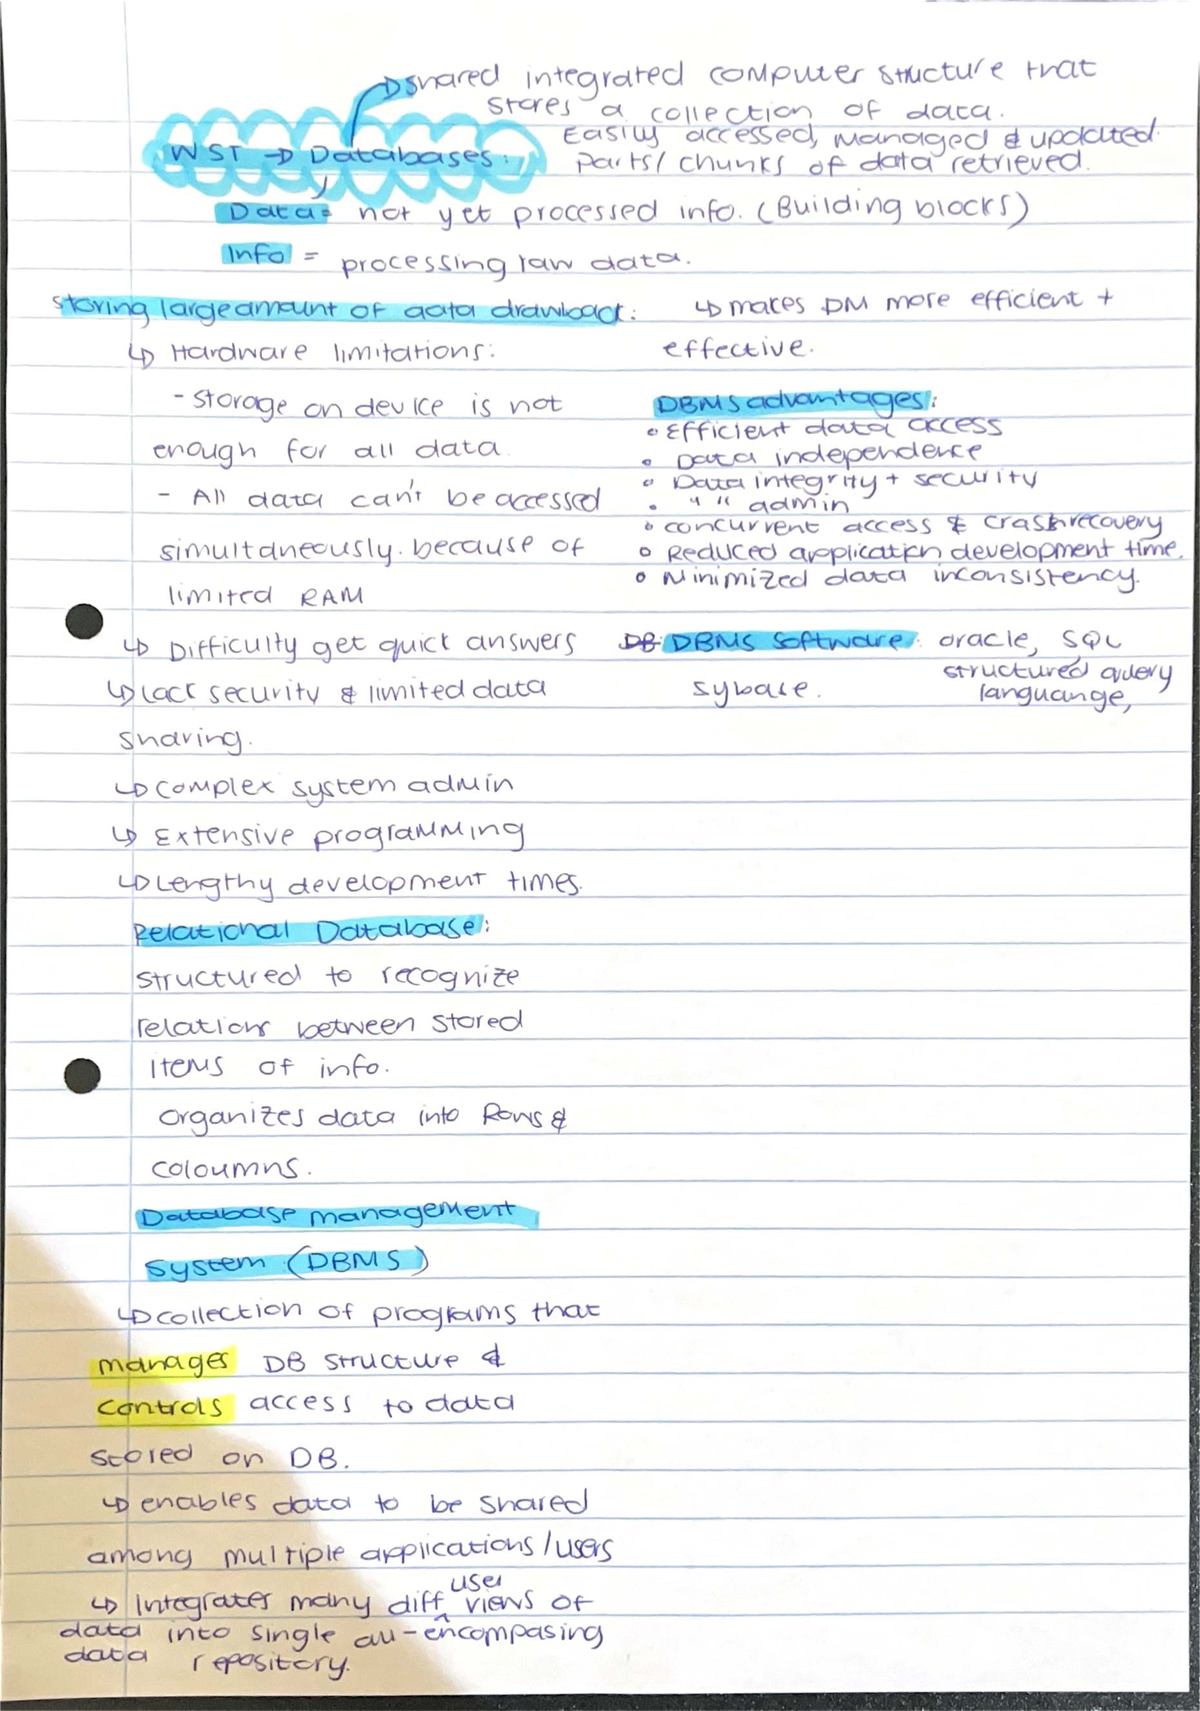 ↳ shared integrated computer structure that
stores a collection of data.
Easily accessed, managed & updated.
WST → Databases.
parts/chunks of data retrieved.
Data = not yet processed info. (Building blocks)
Info = processing raw data.
storing large amount of data drawback:
↳ Hardware limitations:
- storage on device is not
enough for all data
- All data can't be accessed
simultaneously. because of
limited RAM
↳ Difficulty get quick answers
↳ Lack security & limited data
sharing.
↳ complex system admin
↳ Extensive programming
↳ Lengthy development times.
Relational Database:
structured to recognize
relations between stored
items of info.
organizes data into Rows &
coloumns.
Database management
system (DBMS)
↳ collection of programs that
manages DB structure &
controls access to data
stored on DB.
↳ enables data to be shared
among multiple applications/users
↳ Integrates many diff user views of
data into single all-encompasing
data repository.
↳ makes DM more efficient +
effective.
DBMS advantages:
• Efficient data access
• Data independence
• Data integrity + security
• " " admin
• concurrent access & crash recovery
• Reduced application development time.
• Minimized data inconsistency.
DB: DBMS software: oracle, SQL
structured query
languange,
sybase.